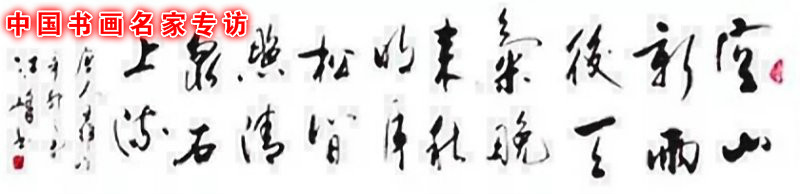 中国书画名家专访
空山
新雨
後天
氣晚
來秋
明月
松間
照清
泉石
上流